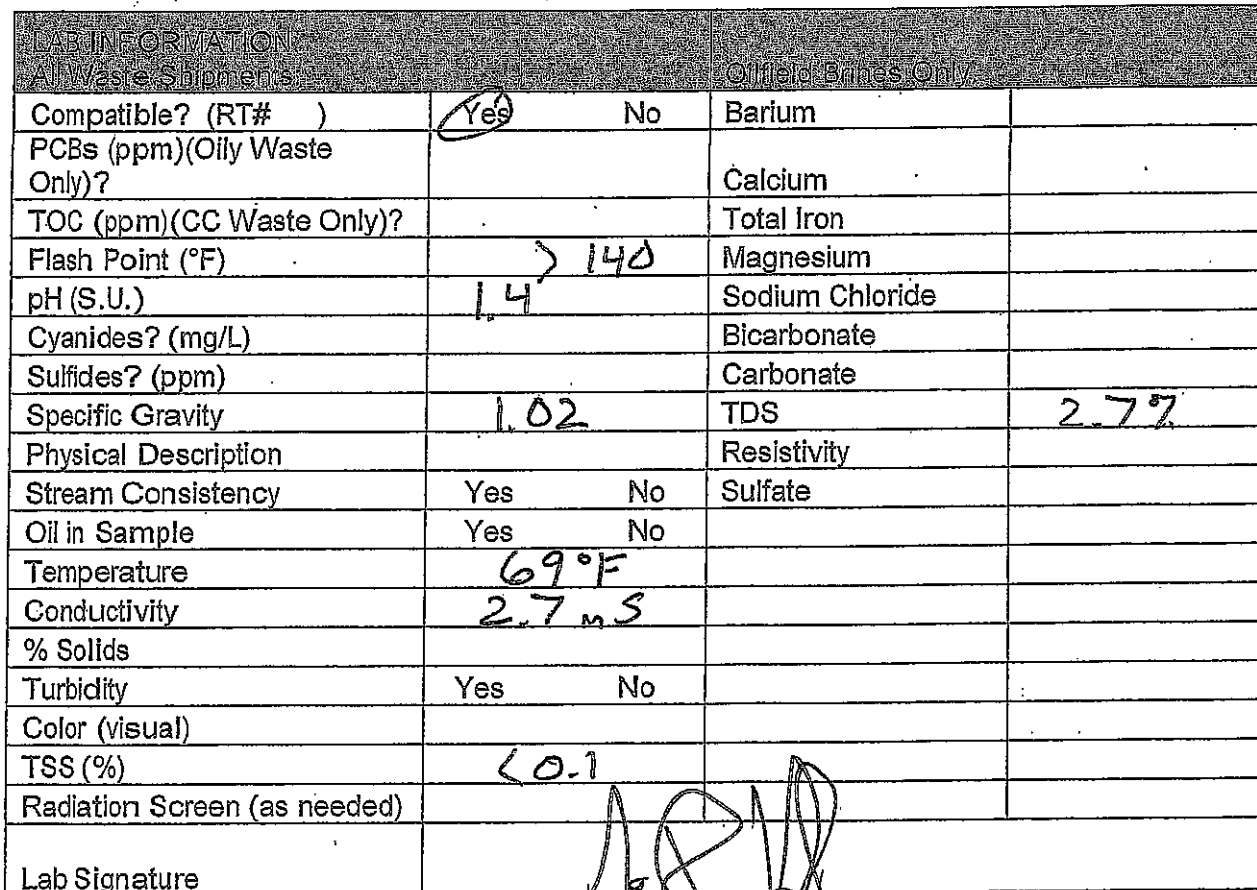 LAB INFORMATION
All Waste Shipments Oilfield Brines Only
Compatible? (RT# ) Yes No Barium
PCBs (ppm)(Oily Waste
Only)? Calcium
TOC (ppm)(CC Waste Only)? Total Iron
Flash Point (°F) > 140 Magnesium
pH (S.U.) 1.4 Sodium Chloride
Cyanides? (mg/L) Bicarbonate
Sulfides? (ppm) Carbonate
Specific Gravity 1.02 TDS 2.7%
Physical Description Resistivity
Stream Consistency Yes No Sulfate
Oil in Sample Yes No
Temperature 69°F
Conductivity 2.7 mS
% Solids
Turbidity Yes No
Color (visual)
TSS (%) <0.1
Radiation Screen (as needed)
Lab Signature